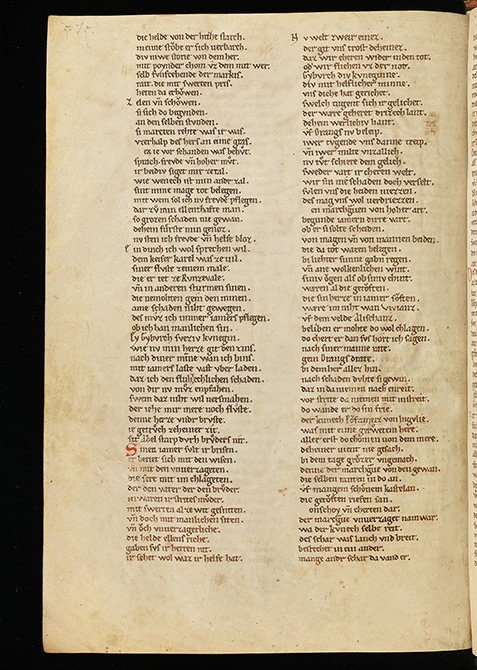 die helde von der hitze starch.
in eime stoͮbe er sich verbarch.
div niwe storie von dem her.
mit poynder chom vz dem mit wer.
selb fvmfzehende der markus.
rait. die mit swerten pris.
heten da erhowen.
zelen vn schowen.
si sich do begunden.
an den selben stunden.
si marcten rehte waz ir was.
vzerhalp des hers an eine graz.
ez ir vor schanden was behvt.
sprach frevde vn hoher mvt.
ir beidiv siget mir ze tal.
wie wenech ist min ander zal.
sint mine mage tot belegen.
mit wem sol ich nv frevde pflegen.
dar zv min ellenthafte man.
so grozen schaden nie gewan.
dehein fvrste min genoz.
nv sten ich frevde vn helfe bloz.
in dinch ich wol sprechen wil.
dem keiser karel was ze vil.
siner flvste ze einem male.
die er tet ze Runzevale.
vn in anderen sturmen sinen.
die nemohten gein den minen.
ame schaden niht gewegen.
des mvz ich immer iamers pflegen.
ob ich han manlichen sin.
Ey Gyburch svezziv kvnegin.
wie nv min herze git den zins.
nach diner minne wan ich bins.
mit iamers laste vast vber laden.
daz ich den flushtechlichen schaden.
von dir nv mvz enpfahen.
swem daz niht wil versmahen.
der iehe mir mere noch flvste.
denne herze vnder brvste.
ie getrvch ze heiner zit.
sit abel starp dvrh brvders nit.
Sinen iamer svlt ir brisen.
er beriet sich mit den wisen.
vn mit den vnverzageten.
die sere mit im chlageten.
der den vater der den brvder.
in waren ir strites mvder.
mit swerten al ze wit gesniten.
vn doch mit manlichen siten.
vn och vnverzagetliche.
die helde ellens riche.
gaben svs ir herren rat.
ir sehet wol waz ir helfe hat.
Nv welt zweir einez.
der git vns trost deheinez.
daz wir cheren wider in den tot.
ob wir fliehen vz der not.
Gyburch div kvneginne.
div mit helflicher minne.
vns diche hat gerichet.
swelch tugent sich ir gelichet.
der ware geheret drizech lant.
dehein werlichiv hant.
vf Orangs nv beleip.
iwer tvgende vns danne treip.
vn iwer milte vnzallich.
nv tvt schiere dem gelich.
sweder vart ir cheren welt.
wir sin mit schaden doch verselt.
svlen vns die heiden nerzzen.
des mag vns wol verdriezzen.
en marchgraven von hoher art.
begunde iamern dirre vart.
ob er si solte scheiden.
von magen vn von mannen beiden.
die da tot waren belegen.
bi liehter sunne gabn regen.
vn ane wolkenlichen wint.
siniv ogen als ob siniv chint.
waren al die getoͮften.
die sin herze in iamer soͮften.
ware im niht wan vivianz.
vf dem velde alischanz.
beliben er mohte do wol chlagen.
do chert er dan svs hort ich sagen.
nach siner manne rate.
gein Orangs drate.
bi dem her allez hin.
nach schaden dvhte si gewin.
daz in da niemen nach enreit.
vor strite da niemen mit in streit.
do wande er do sin frie.
der kunech
was mit eime geverten here.
aller erst do chomen von dem mere.
deheiner vient nie gesach.
bi dem tage grozer vngemach.
denne der marchgrave von den gewan.
die selben ranten in do an.
vf manegem schonem kastelan.
die getoͮften riefen san.
onschoy vn cherten dar.
der marchgrave vnverzaget nam war.
wa der kvnech selbe reit.
des schar was lanch vnd breit.
bestechet in ein ander.
mange ander schar da vand er.